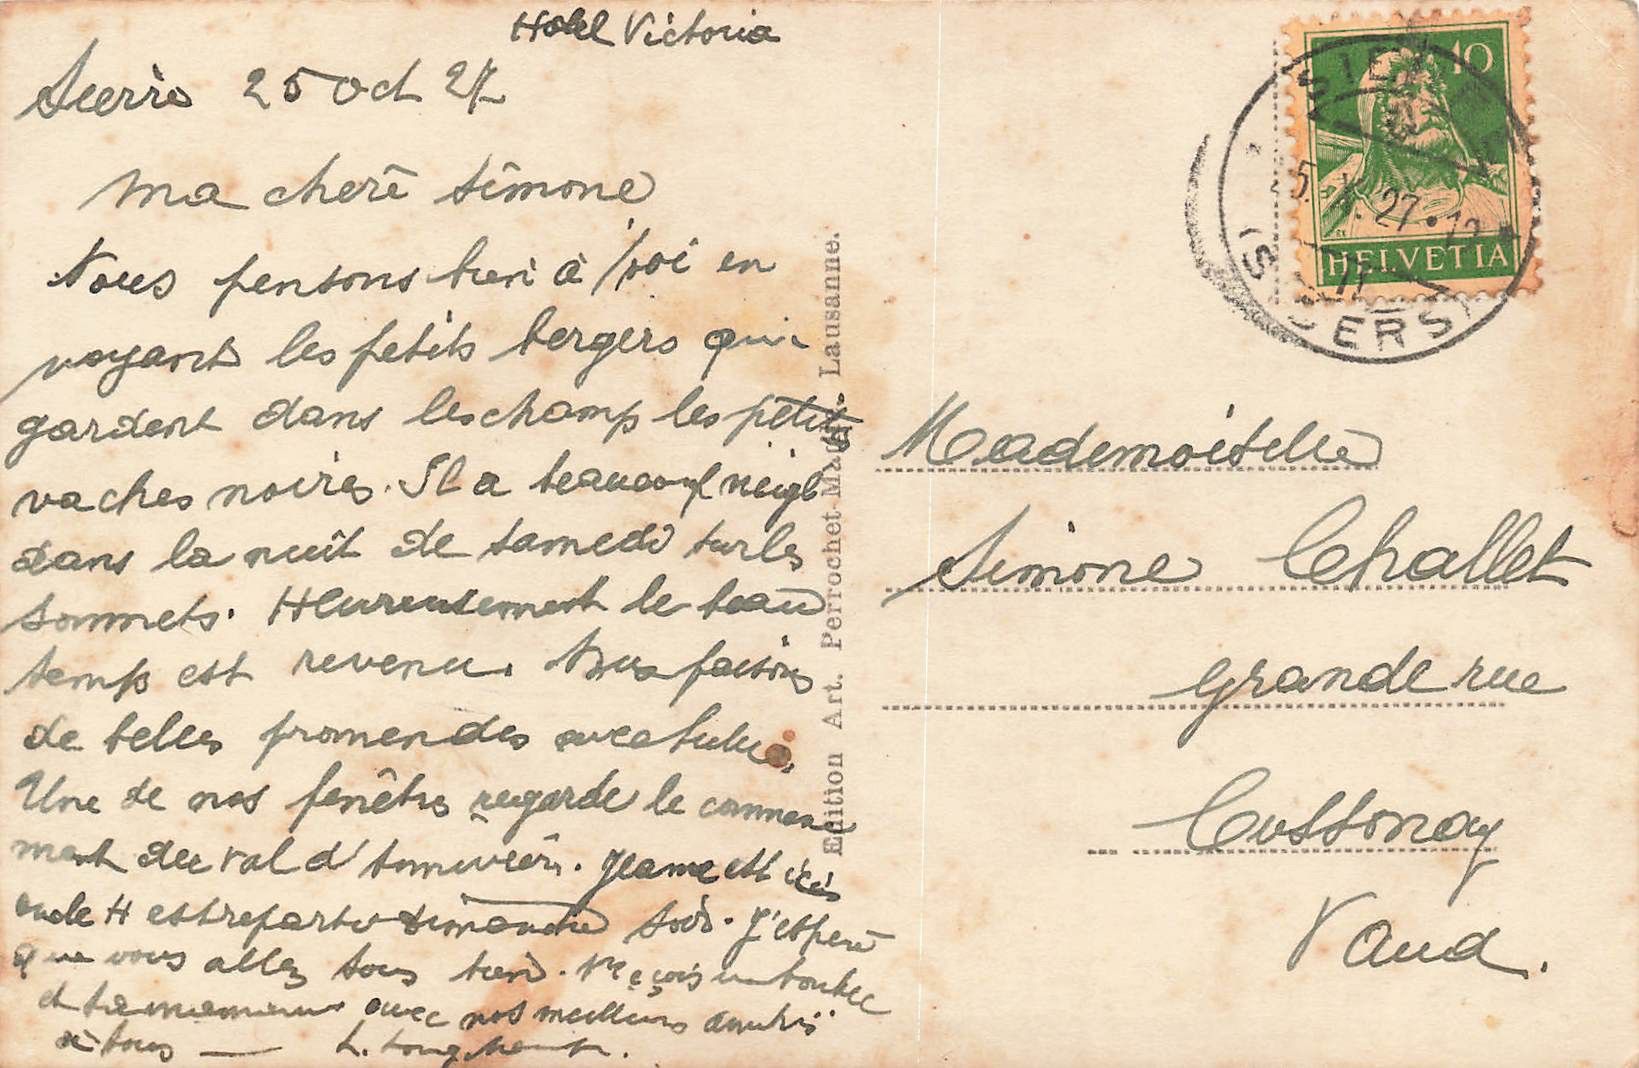 Hotel Victoria
Sierre 25 Oct 27
Ma chere Simone
Nous pensons bien à toi en
voyant les petits bergers qui
gardent dans les champ les petites
vaches noires. Il a beaucoup neigé
dans la nuit de samedi sur les
sommets. Heureusement le beau
temps est revenu. Nous faisons
de belles promendes
Une de nos fenêtres regarde le commen
ment du val d'
est ici
oncle H est reparti dimanche soir. J'espere
que vous allez tous bien. Reçois un
et avec nos meilleurs
à tous
Edition Art. Perrochet-Matile, Lausanne.
10
HELVETIA
27
(SIDERS)
Mademoiselle
Simone Challet
grande rue
Cossonay
Vaud.